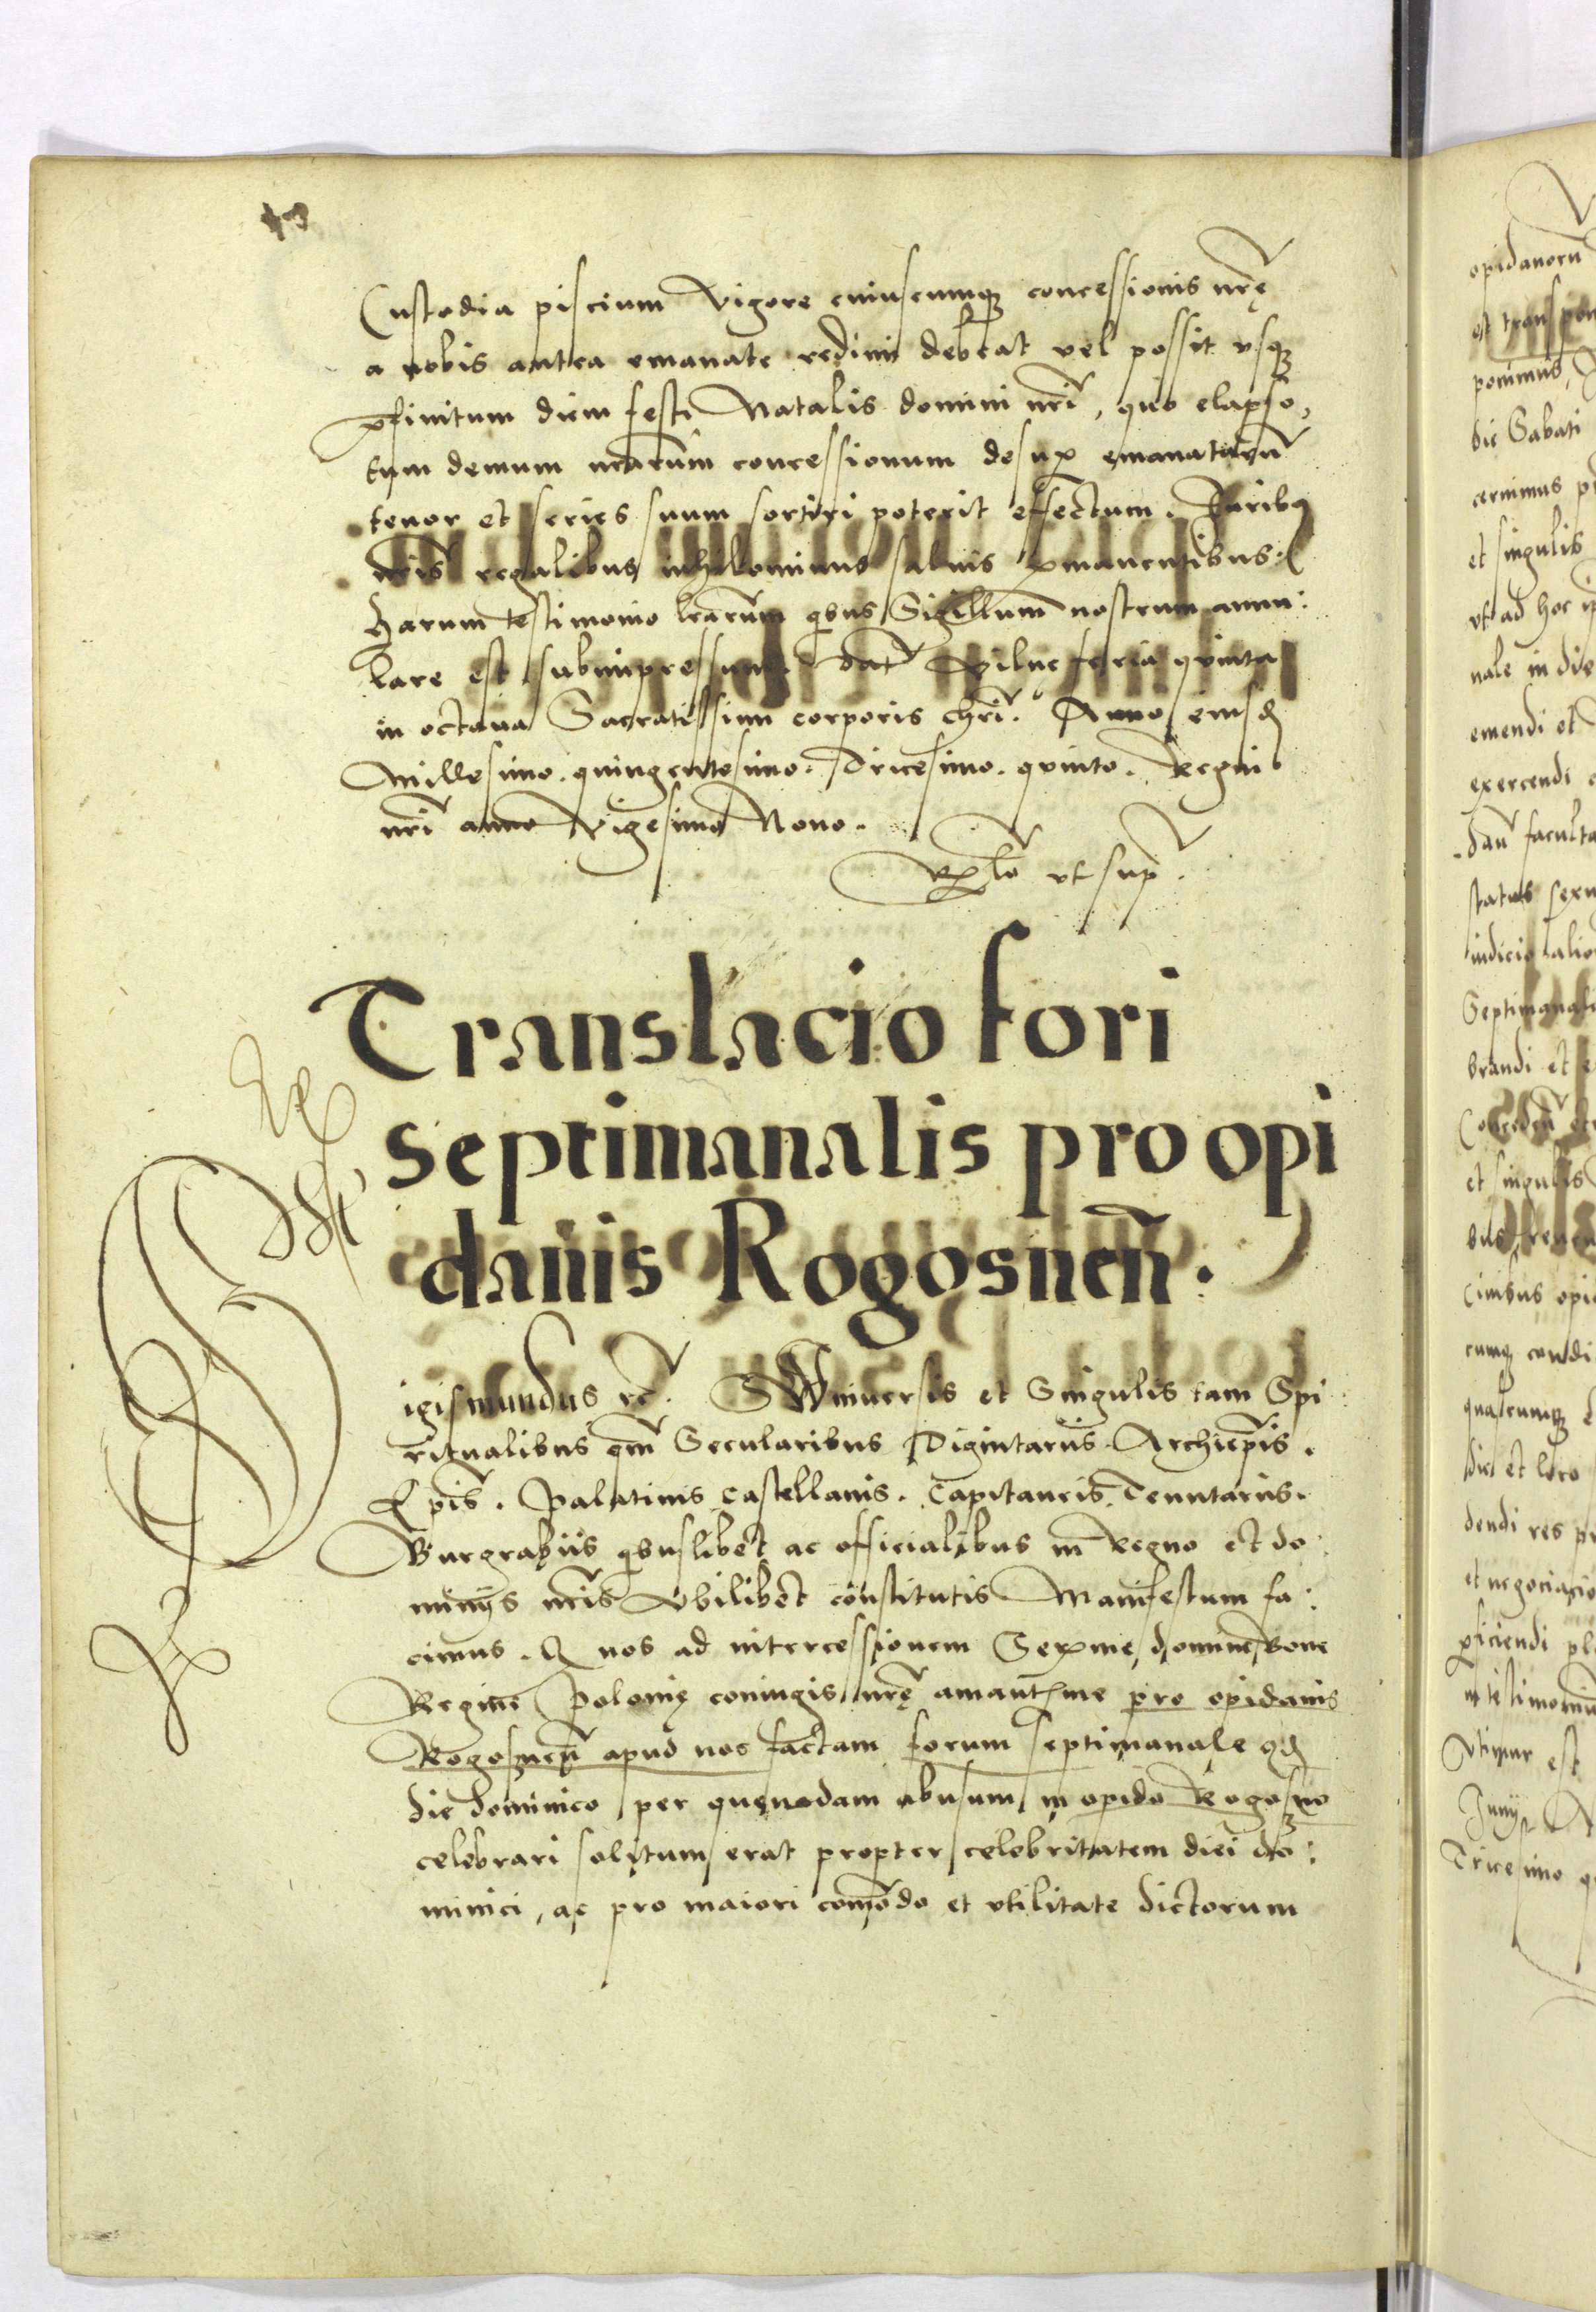 Custodia piscium vigore cuiuscumqȝ concessionis nrę
a nobis antea emanate redimi debeat vel possit vsqȝ
p̱finitum diem festi Natalis domini nri̅, quo elapso,
tum demum nrarum̅ concessionum desup̱ emanataru̅
tenor et series suum sortiri poterit effectum. Juribꝰ
nris̅ regalibus nihilominus saluis ꝑmanentibus:
Harum testimonio lrarum̅ qbus Sigillum nostrum annu:
lare est subimpressum. Dat̅ Vilnę feria quinta
in octaua Sacratissimi corporis chri̅. Anno eiusd̅
Millesimo. quingentesimo. Tricesimo. quinto. Regni
nri̅ anno Vigesimo Nono.
Rela̅ vt sup̅.
Translacio fori
Septimanalis pro opi
danis Rogosnen̅.
Sigismundus rc̅. Vniuersis et Singulis tam Spi
ritualibus qm̅ Secularibus Dignitariis. Archiepis̅.
Epis̅. Palatinis Castellanis. Capitaneis. Tenutariis.
Burgrabiis qbuslibet ac officialibus in Regno et do:
minijs nris̅ Vbilibet constitutis Manifestum fa:
cimus. Q nos ad intercessionem Serme̅ domine Bone
Regine Polonię coniugis nrę amantme̅ pro opidanis
Rogoznen̅ apud nos factam forum septimanale qd̅
die dominico per quendam abusum in opido Rogozno
celebrari solitum erat propter celebritatem diei do:
minici, ac pro maiori com̅odo et vtilitate dictorum
opidanoru̅
est transpon
ponimus,
die Sabati
cernimus
et singulis
vt ad hoc
nale in die
emendi et
exercendi
dan̅ faculta
status sexu
iudicio
Septimanali
brandi et
et singulis
cunqȝ condi
quascumqȝ
die et loco
dendi res
et negociacio
ꝑficiendi
testimoniu
Vtimur est
Junij
Tricesimo